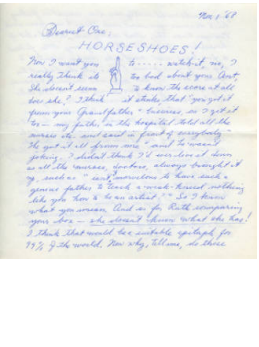 Nov 1, 68
Dearest One,
HORSESHOES!
Now I want you to ..... watch it, no, I
really think it's too bad about your Aunt,
She doesn't seem to know the score at all
does she? I think it stinks, that "you got it
from your Grandfather" business. as I got it
too - my father in the hospital told all the
nurses etc. and said in front of everybody -
"She got it all from me" and he wasn't
joking. I didn't think I'd ever live it down
as all the nurses, doctors, always brought it
up, such as "isn't marvelous to have such a
genius father to teach a weak-kneed nothing
like you how to be an artist." So I know
what you mean. And as for Ruth comparing
your box - she doesn't know what she has!
I think that would be a suitable epitaph for
99% of the world. Now why, tell me, do these